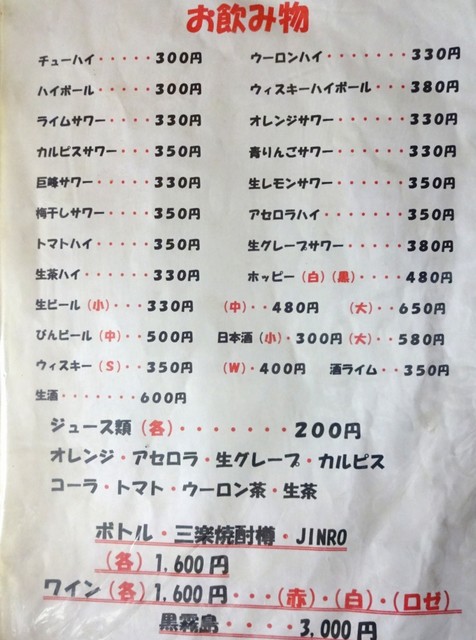 お飲み物
チューハイ・・・・・300円 ウーロンハイ・・・・・・・330円
ハイボール・・・・・300円 ウィスキーハイボール・・・380円
ライムサワー・・・・330円 オレンジサワー・・・・・・330円
カルピスサワー・・・350円 青りんごサワー・・・・・・330円
巨峰サワー・・・・・330円 生レモンサワー・・・・・・350円
梅干しサワー・・・・350円 アセロラハイ・・・・・・・350円
トマトハイ・・・・・350円 生グレープサワー・・・・・380円
生茶ハイ・・・・・・330円 ホッピー(白)(黒)・・・・480円
生ビール(小)・・・330円 (中)・・480円 (大)・・650円
びんビール(中)・・500円 日本酒(小)・300円(大)・・580円
ウィスキー(S)・・350円 (W)・400円 酒ライム・・350円
生酒・・・・・・・600円
ジュース類(各)・・・・・・・200円
オレンジ・アセロラ・生グレープ・カルピス
コーラ・トマト・ウーロン茶・生茶
ボトル・三楽焼酎樽・JINRO
(各)1,600円
ワイン(各)1,600円・・・(赤)・(白)・(ロゼ)
黒霧島・・・・3,000円